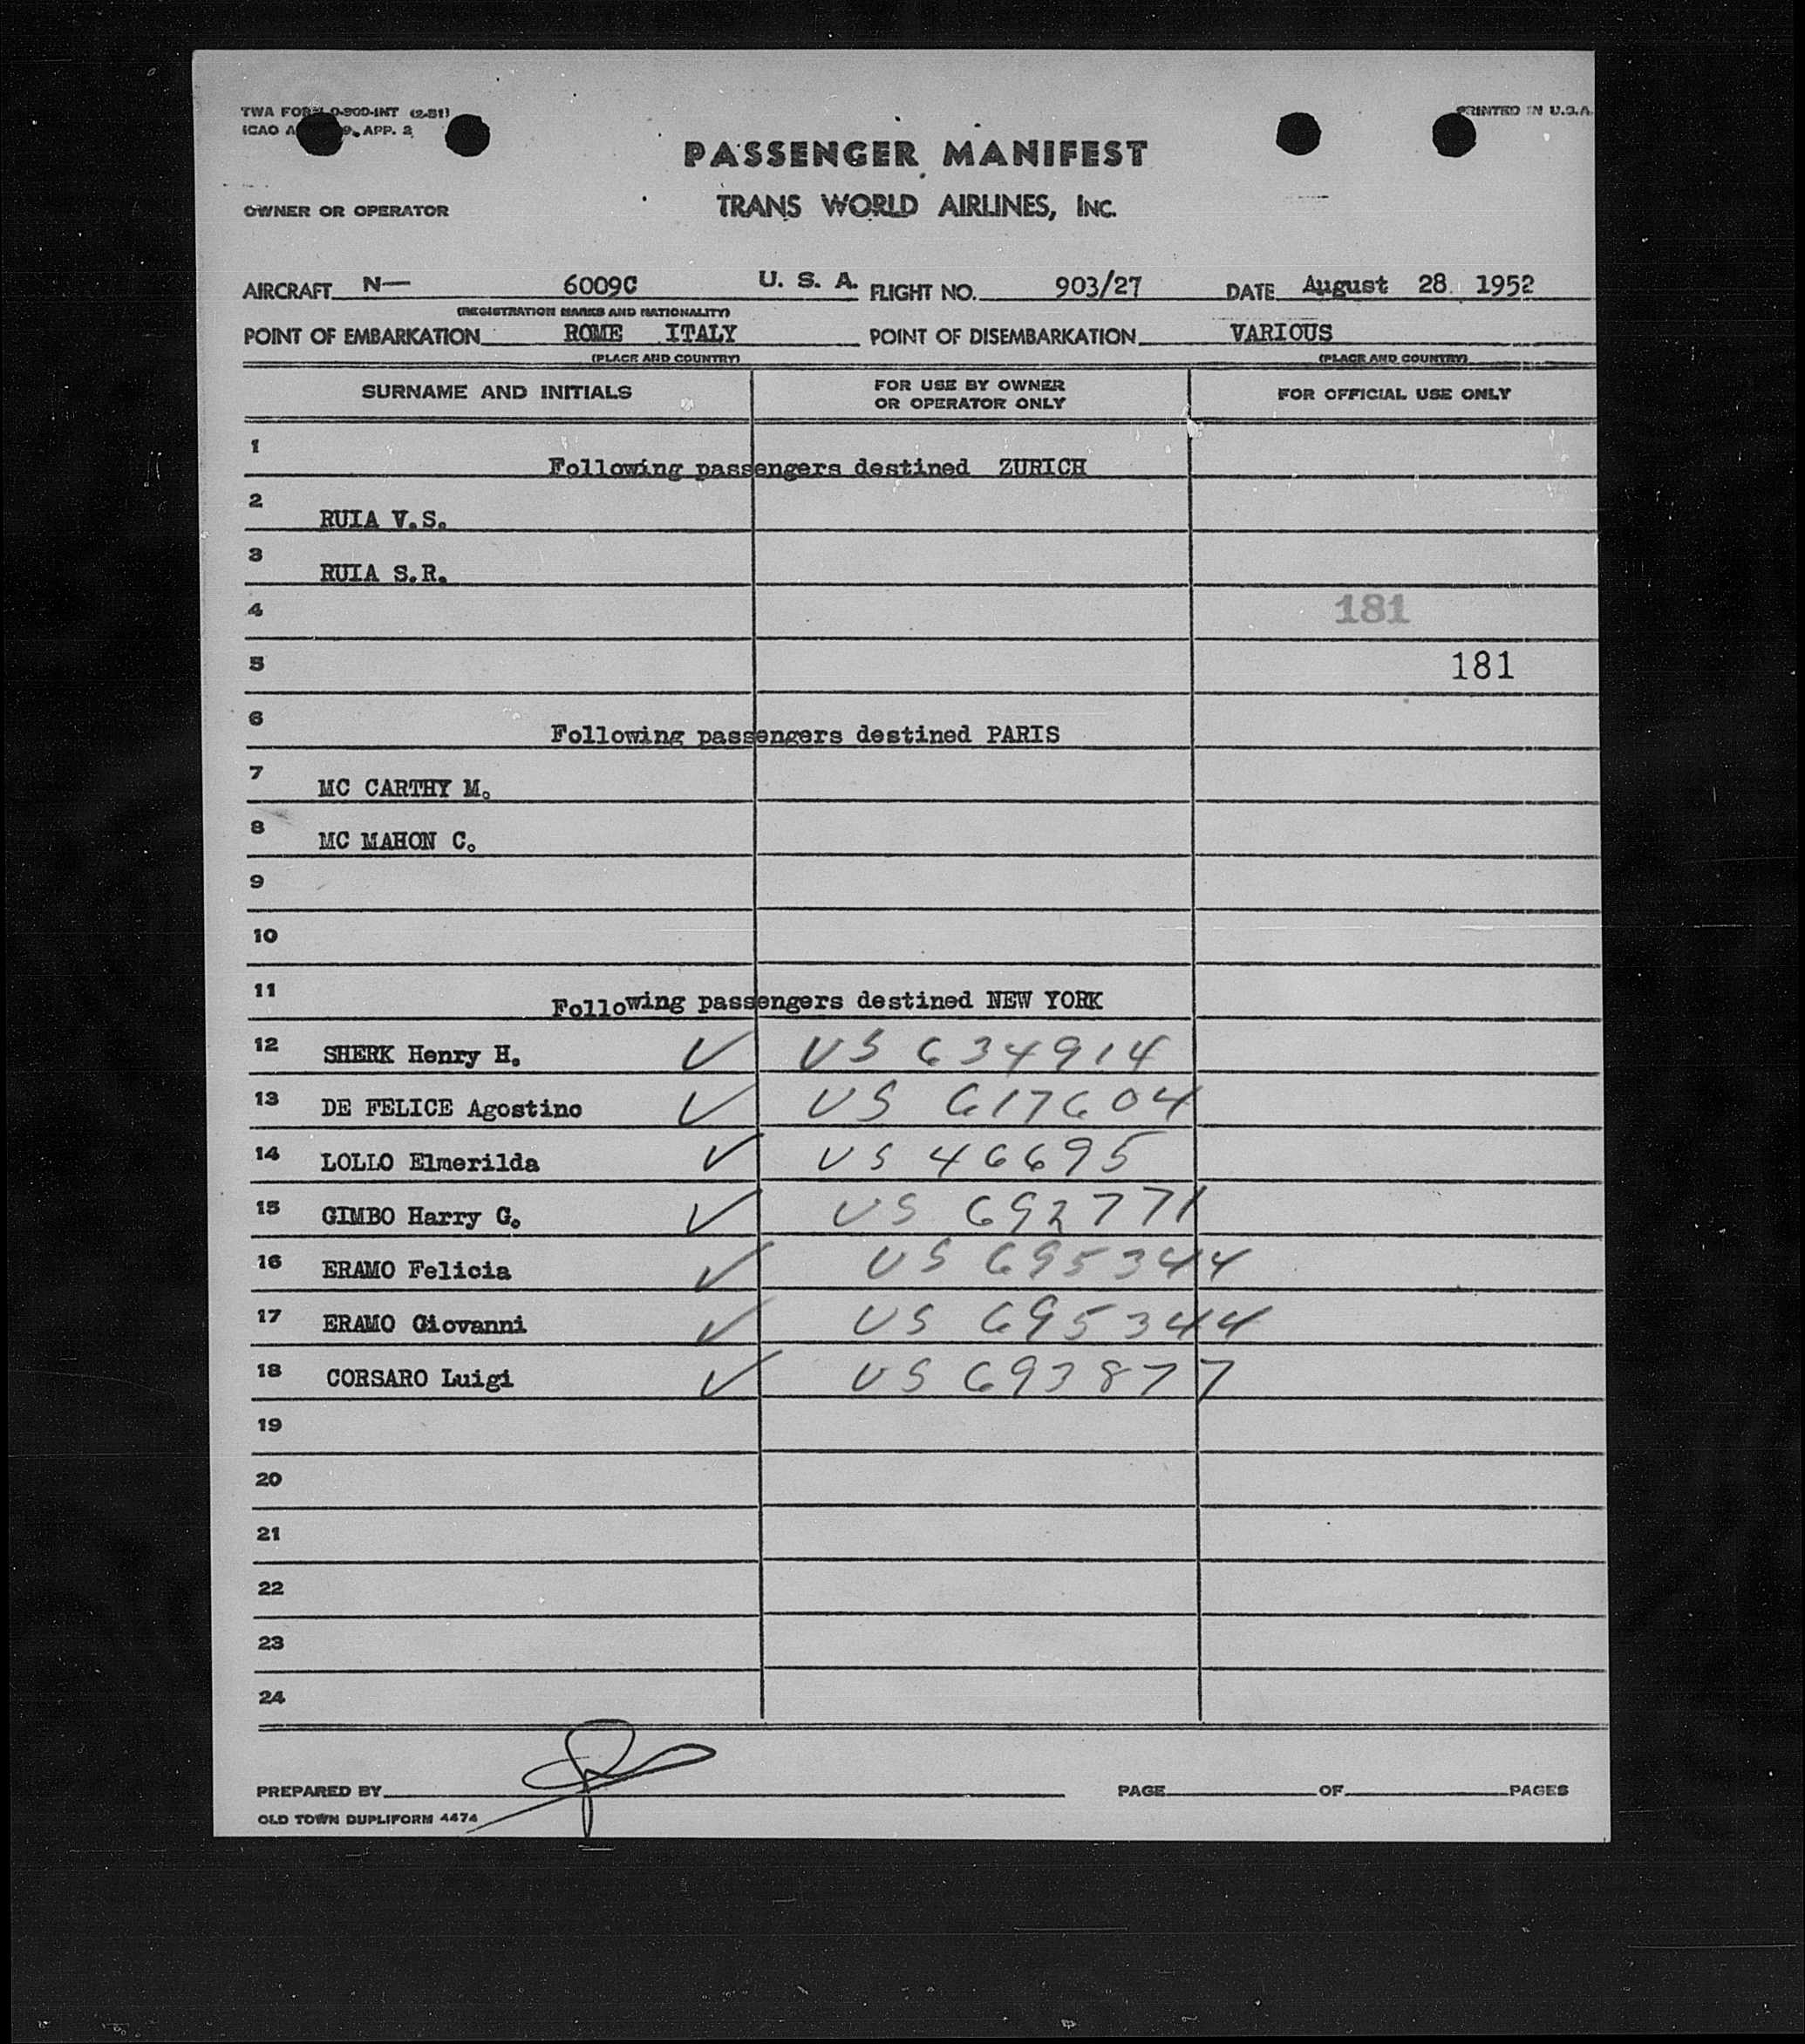 TWA FORM O-90D-INT (2-51)
PRINTED IN U.S.A.
ICAO 9, APP. 2
PASSENGER MANIFEST
OWNER OR OPERATOR TRANS WORLD AIRLINES, INC.
AIRCRAFT N— 6009C U. S. A. FLIGHT NO. 903/27 DATE August 28 1952
(REGISTRATION MARKS AND NATIONALITY)
POINT OF EMBARKATION ROME ITALY POINT OF DISEMBARKATION VARIOUS
(PLACE AND COUNTRY) (PLACE AND COUNTRY)
SURNAME AND INITIALS FOR USE BY OWNER OR OPERATOR ONLY FOR OFFICIAL USE ONLY
1 Following passengers destined ZURICH
2 RUIA V.S.
3 RUIA S.R.
4 181
5 181
6 Following passengers destined PARIS
7 MC CARTHY M.
8 MC MAHON C.
9
10
11 Following passengers destined NEW YORK
12 SHERK Henry H. ✓ US 634914
13 DE FELICE Agostino ✓ US 617604
14 LOLLO Elmerilda ✓ US 46695
15 GIMBO Harry G. ✓ US 692771
16 ERAMO Felicia ✓ US 695344
17 ERAMO Giovanni ✓ US 695344
18 CORSARO Luigi ✓ US 693877
19
20
21
22
23
24
PREPARED BY PAGE OF PAGES
OLD TOWN DUPLIFORM 4474